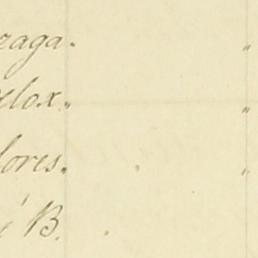 zaga. "
elox. "
lores. "
é B.